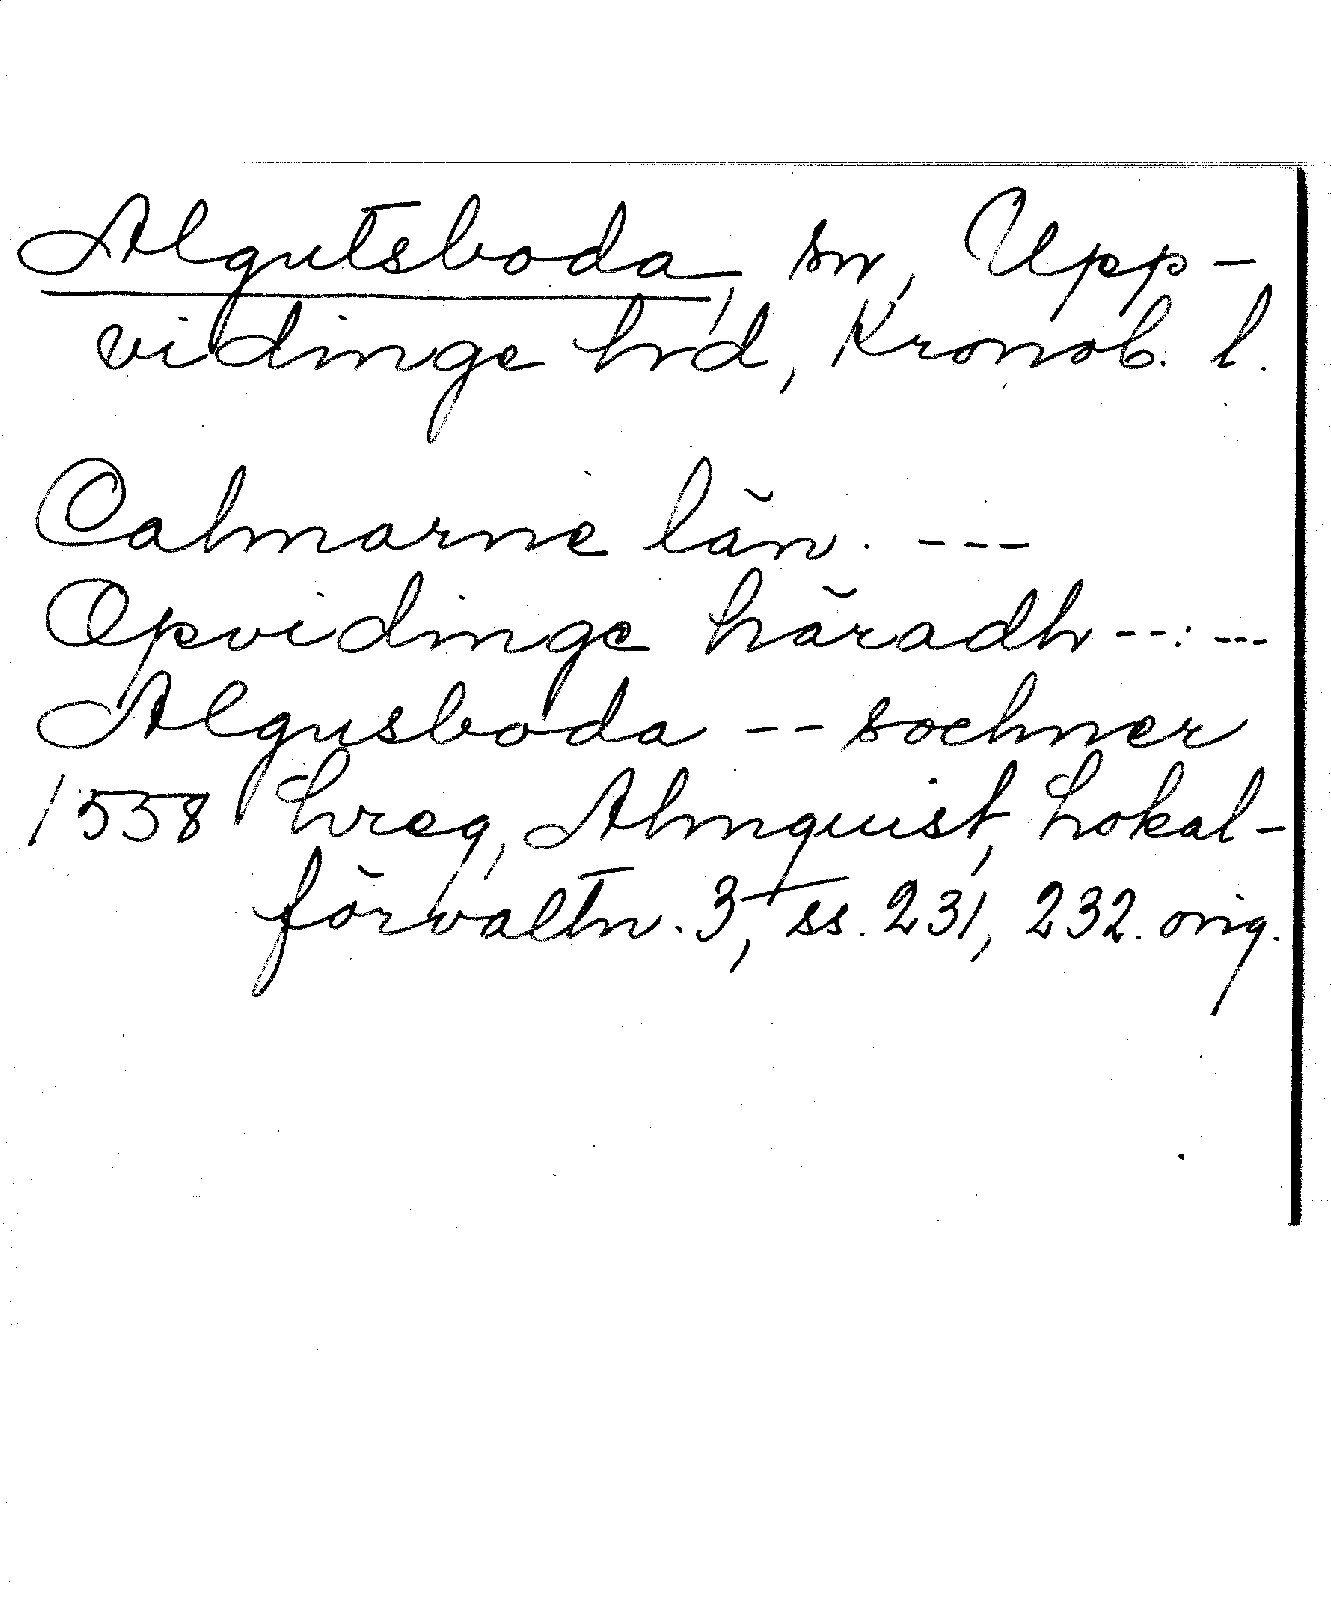 Algutsboda, sn, Upp-
vidinge hrd, Kronob. l.
Calmarne län. ---
Opvidinge häradh --: ---
Algusboda -- sochner
1558 hreg, Almquist, Lokal-
förvaltn. 3, ss. 231, 232. orig.